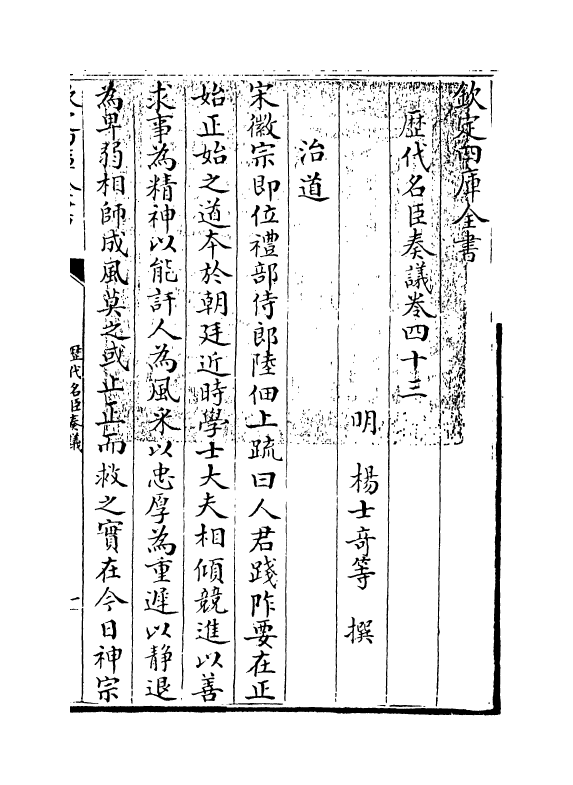 欽定四庫全書
歴代名臣奏議巻四十三
明 楊士竒等 撰
治道
宋徽宗即位禮部侍郎陸佃上疏曰人君踐阼要在正
始正始之道本於朝廷近時學士大夫相傾競進以善
求事為精神以能訐人為風采以忠厚為重遲以静退
為卑弱相師成風莫之或止正而救之實在今日神宗
歴代名臣奏議
一